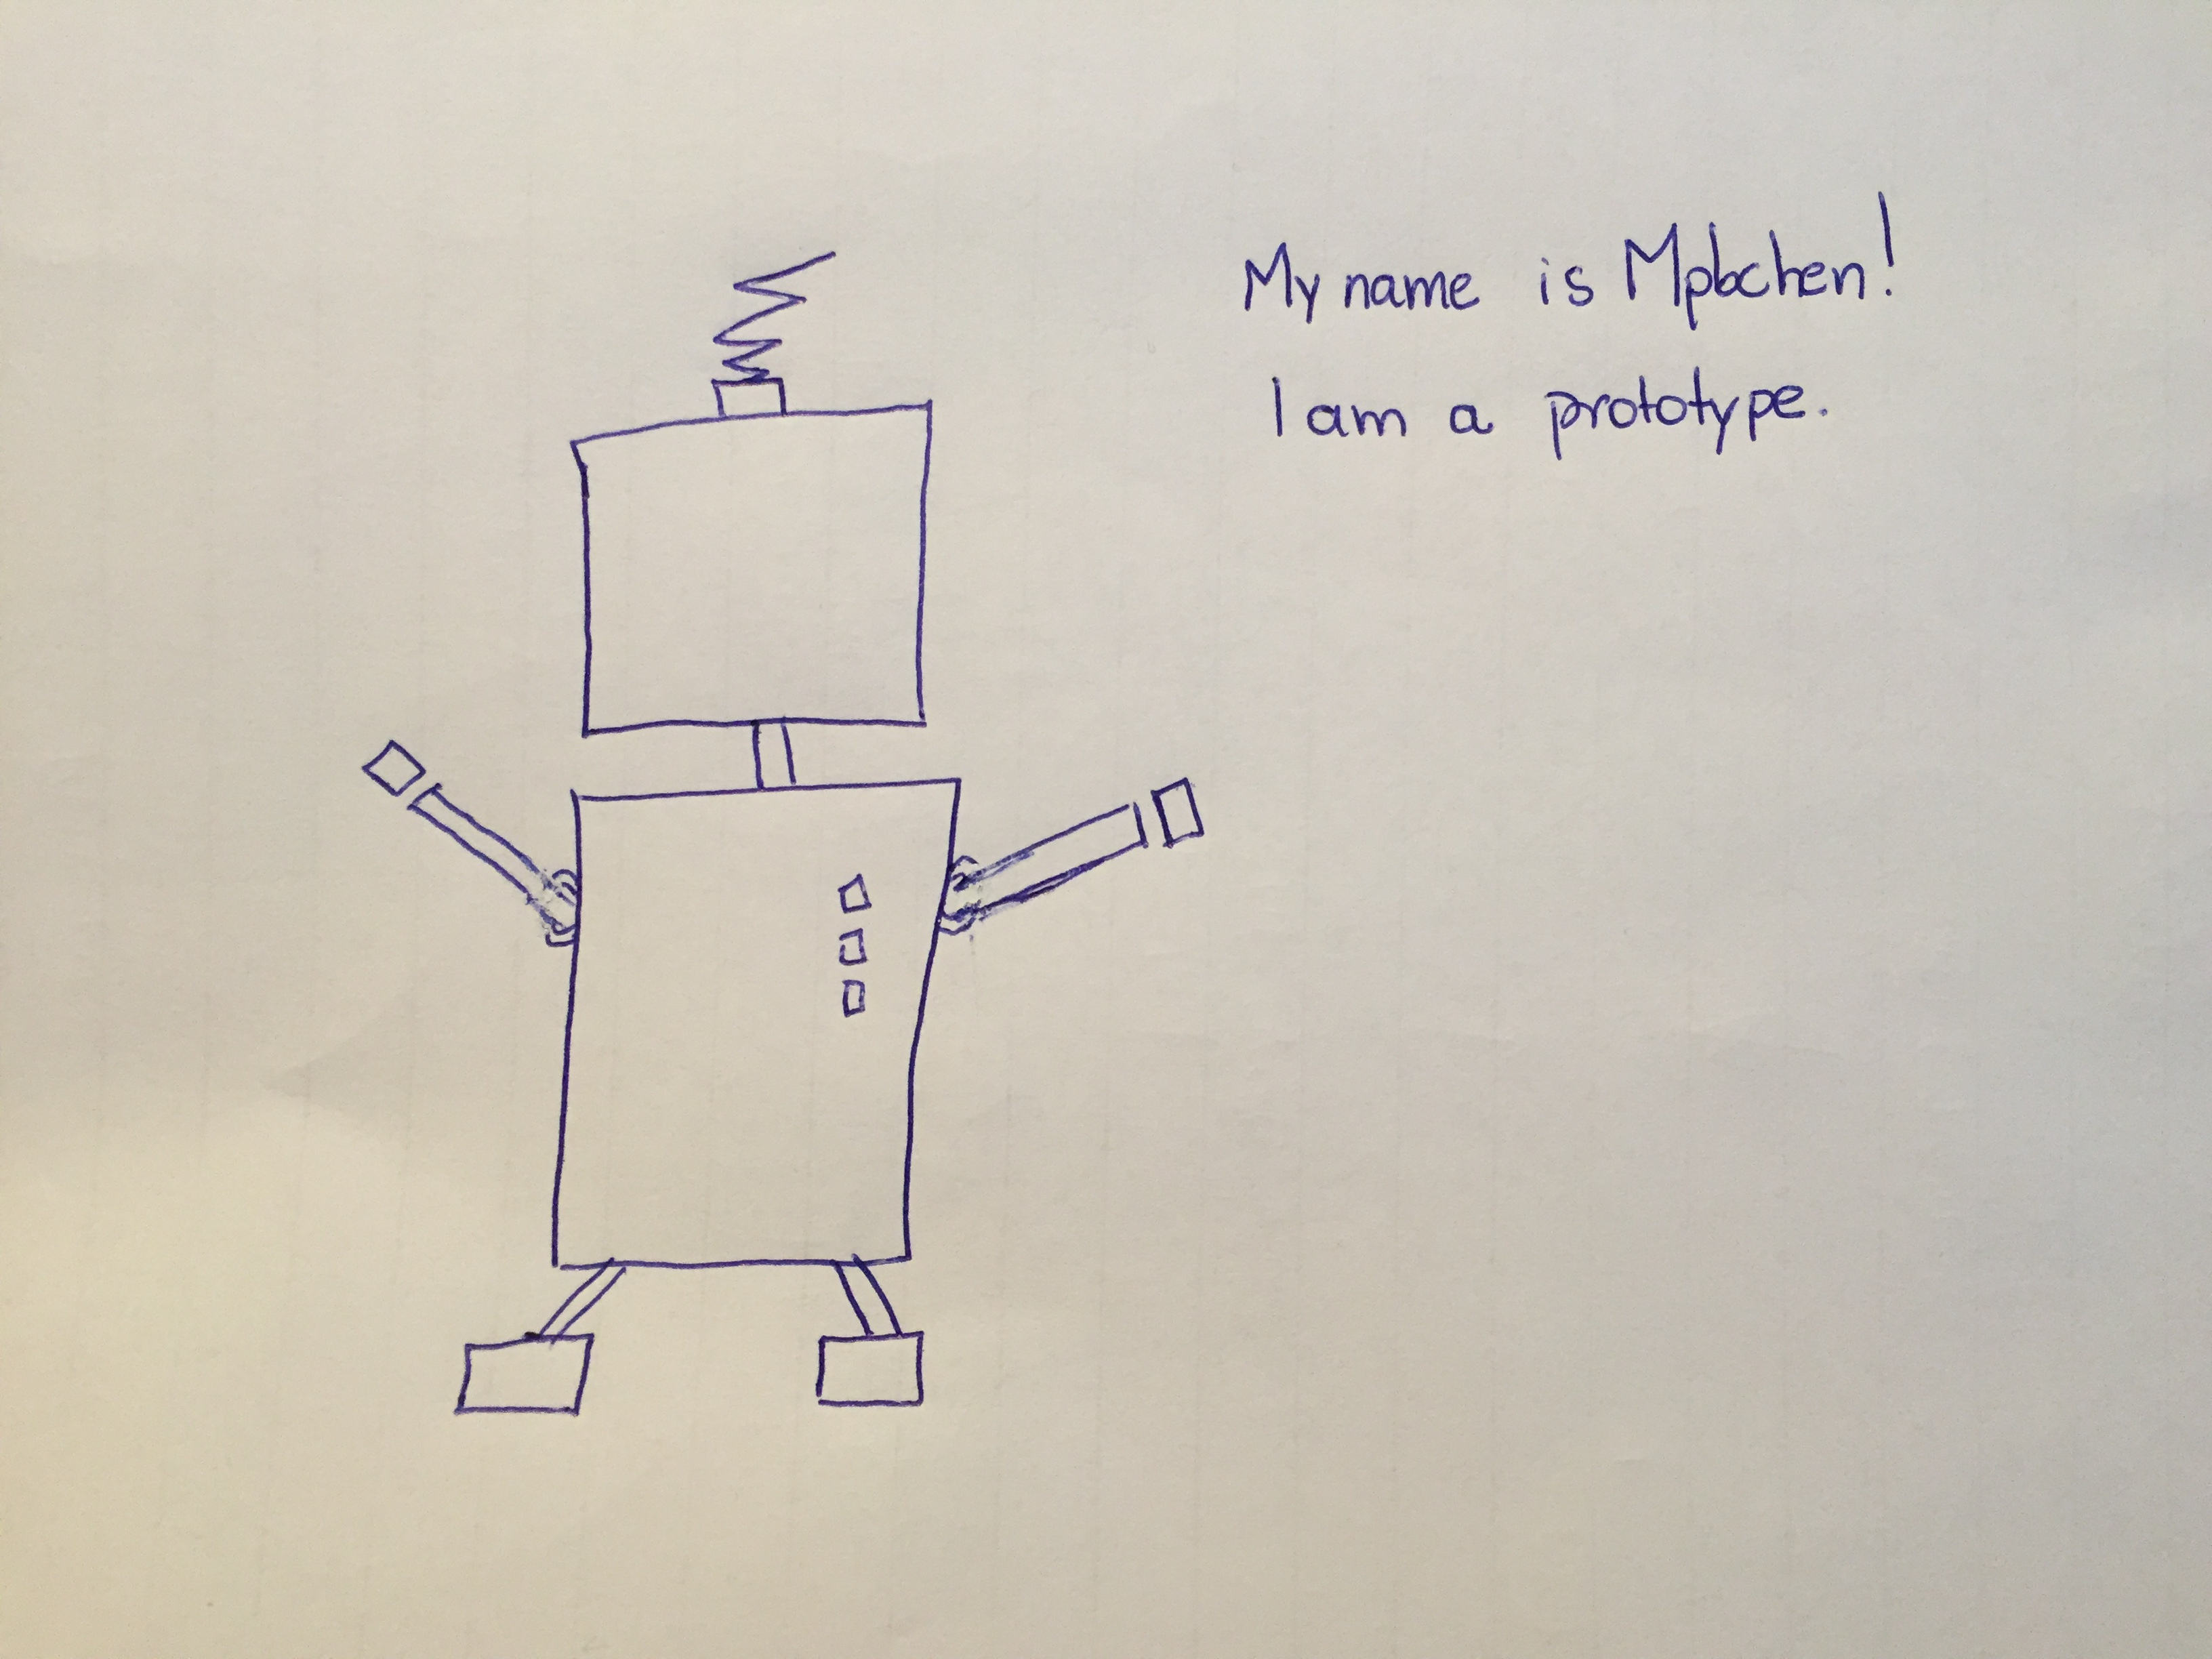 My name is Mpbchen!
I am a prototype.